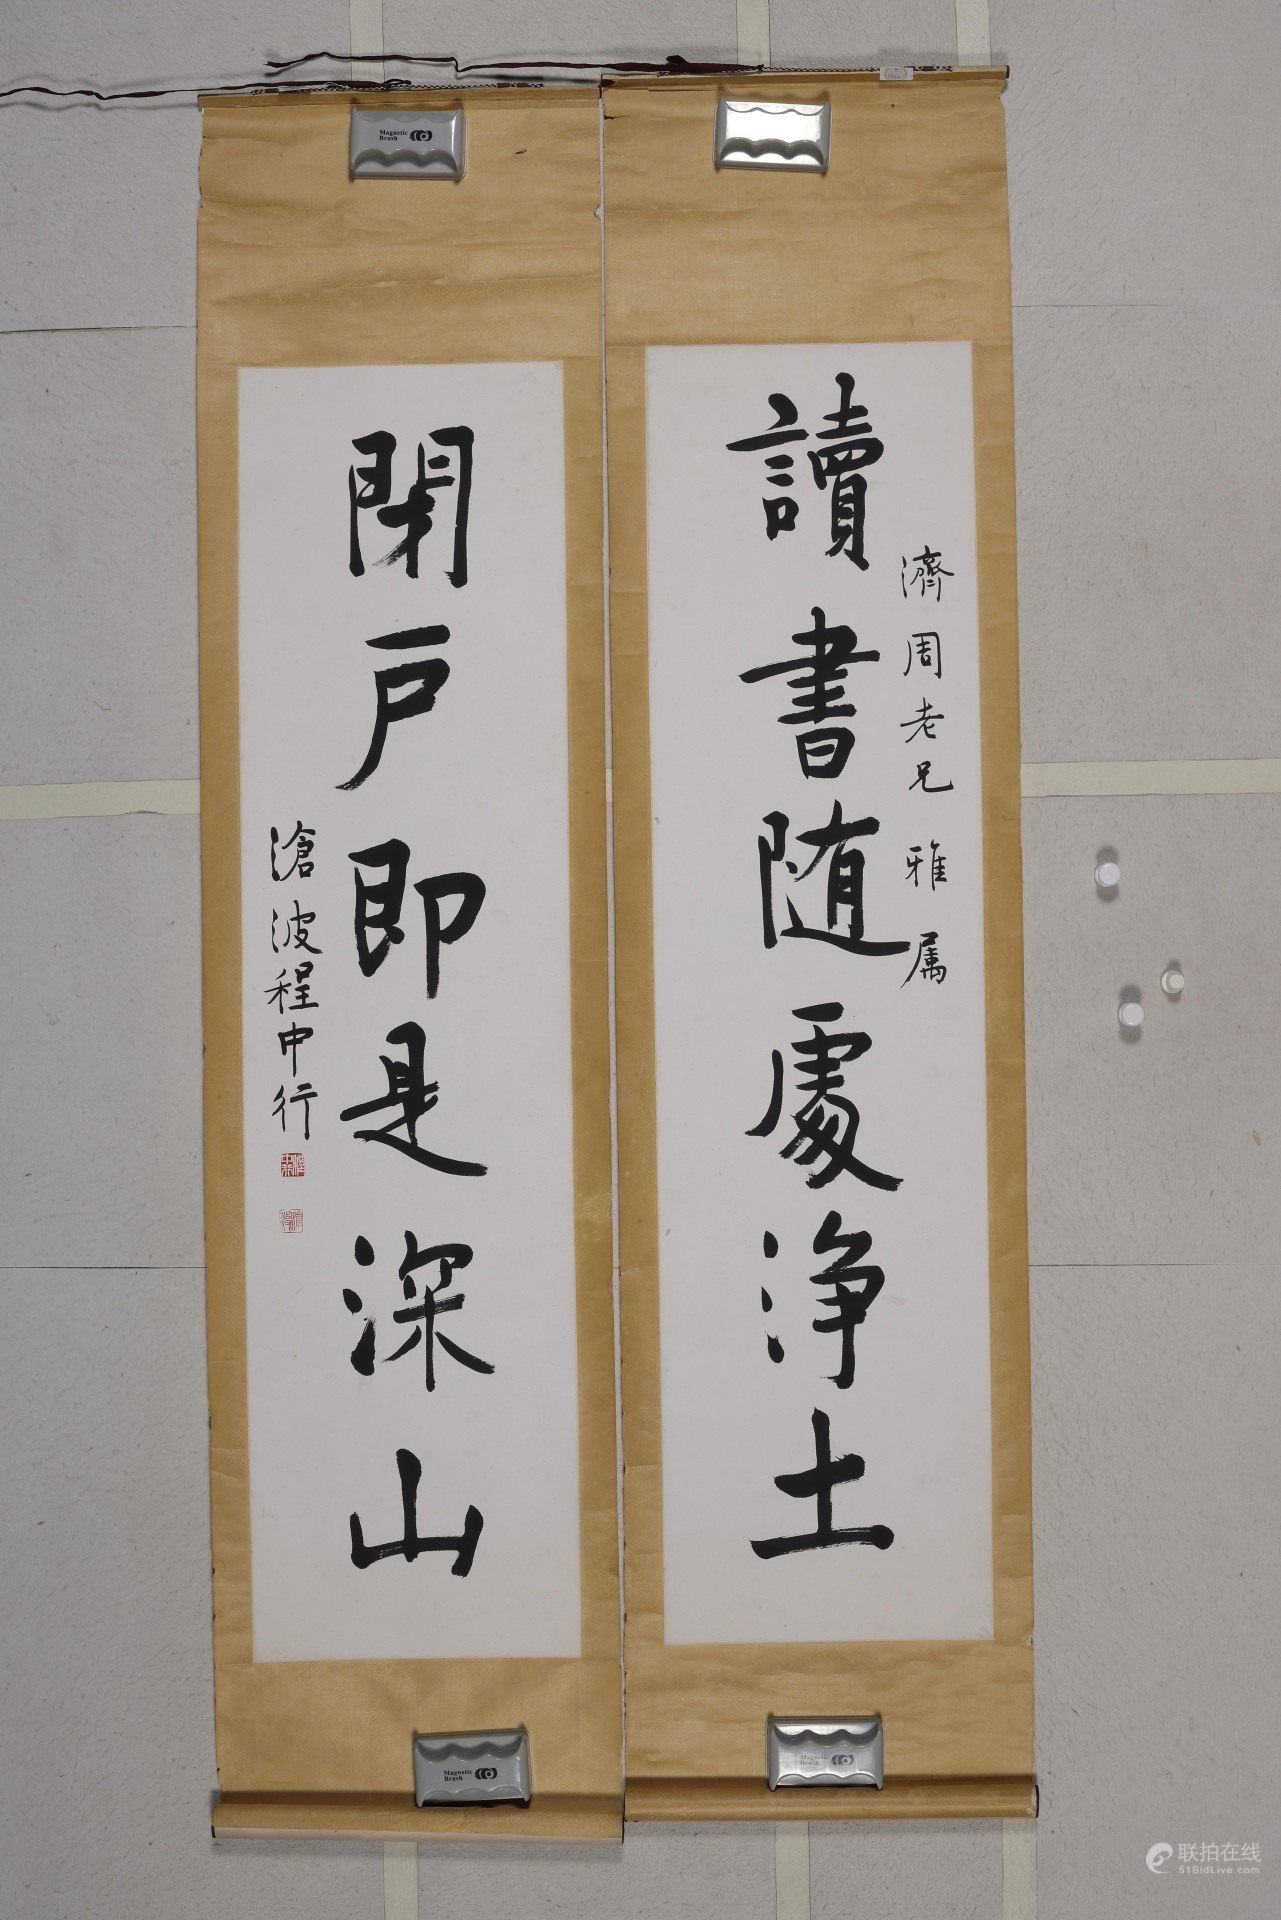 讀書随處浄土
濟周老兄雅属
閉戸即是深山
滄波程中行
Magnetic
Brush
Magnetic
Brush
Magnetic
Brush
联拍在线
51BidLive.com